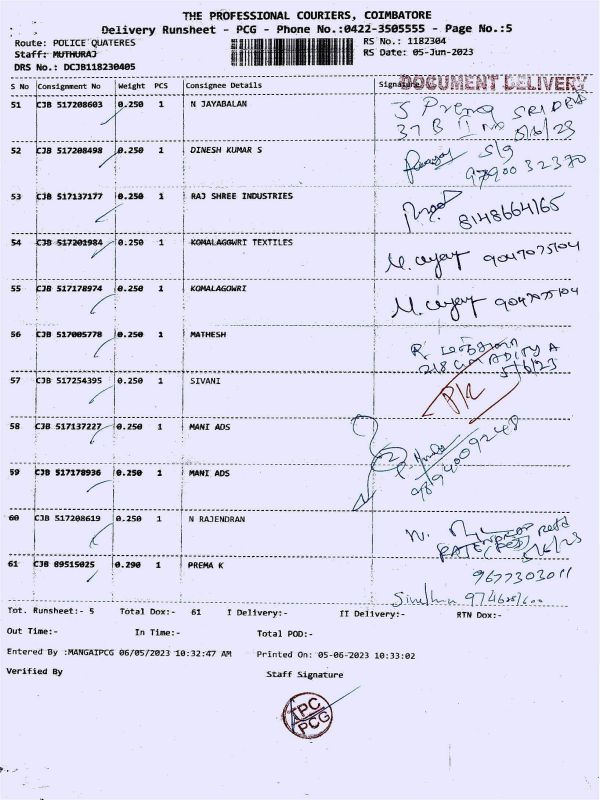 THE PROFESSIONAL COURIERS, COIMBATORE
Delivery Runsheet - PCG - Phone No.:0422-3505555 - Page No.:5
Route: POLICE QUATERES RS No.: 1182304
Staff: MUTHURAJ RS Date: 05-Jun-2023
DRS No.: DCJB118230405
DOCUMENT DELIVERY
S No Consignment No Weight PCS Consignee Details Signature
51 CJB 517208603 0.250 1 N JAYABALAN
37 B 5/6/23
52 CJB 517208498 0.250 1 DINESH KUMAR S S/g
9790032370
53 CJB 517137177 0.250 1 RAJ SHREE INDUSTRIES
8148664165
54 CJB 517201984 0.250 1 KOMALAGOWRI TEXTILES 9047075104
55 CJB 517178974 0.250 1 KOMALAGOWRI 9047075104
56 CJB 517005778 0.250 1 MATHESH R.
5/6/23
57 CJB 517254395 0.250 1 SIVANI
58 CJB 517137227 0.250 1 MANI ADS
9894009248
59 CJB 517178936 0.250 1 MANI ADS
60 CJB 517208619 0.250 1 N RAJENDRAN N.
5/6/23
61 CJB 89515025 0.290 1 PREMA K 9677303011
Tot. Runsheet:- 5 Total Dox:- 61 I Delivery:- II Delivery:- RTN Dox:-
Out Time:- In Time:- Total POD:-
Entered By :MANGAIPCG 06/05/2023 10:32:47 AM Printed On: 05-06-2023 10:33:02
Verified By Staff Signature
TPC
PCG